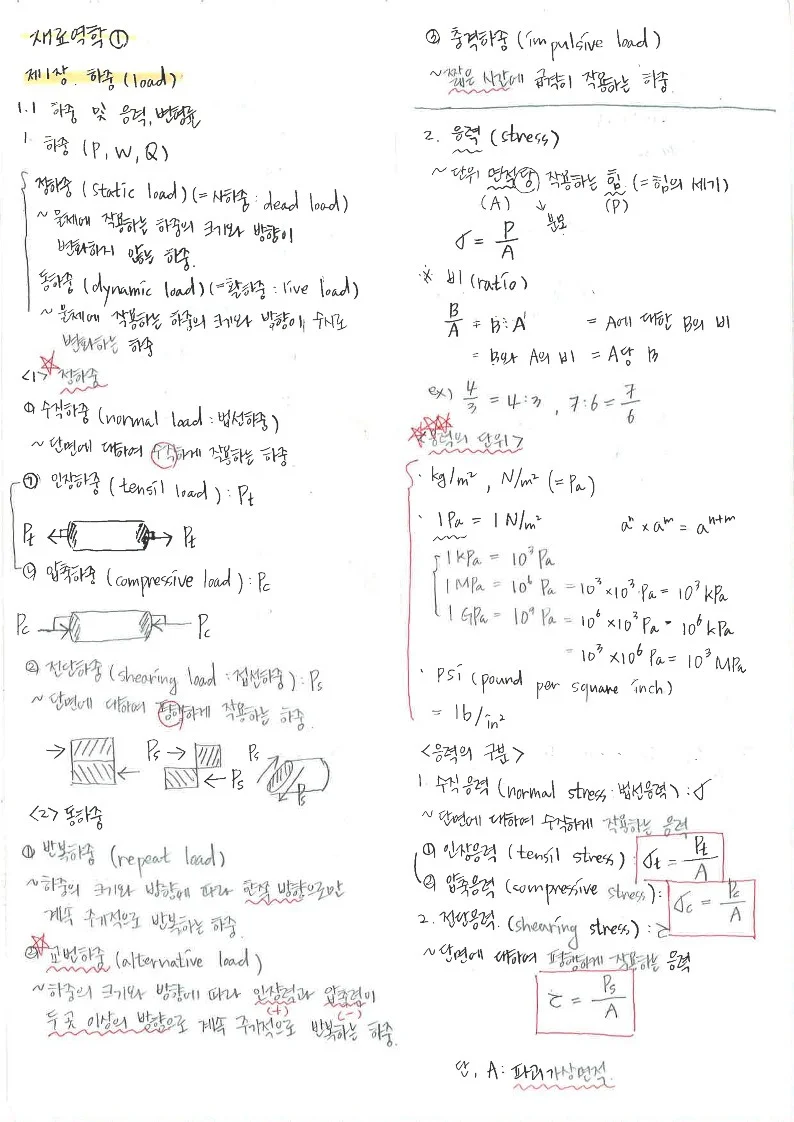 재료역학 ①
제1장. 하중 (load)
1.1 하중 및 응력, 변형률
1. 하중 (P, W, Q)
정하중 (static load) (= 사하중 : dead load)
~ 물체에 작용하는 하중의 크기와 방향이
변화하지 않는 하중.
동하중 (dynamic load) (= 활하중 : live load)
~ 물체에 작용하는 하중의 크기와 방향이 수시로
변화하는 하중
<1> 정하중
① 수직하중 (normal load : 법선하중)
~ 단면에 대하여 수직하게 작용하는 하중
㉠ 인장하중 (tensil load) : Pt
Pt Pt
㉡ 압축하중 (compressive load) : Pc
Pc Pc
② 전단하중 (shearing load : 접선하중) : Ps
~ 단면에 대하여 평행하게 작용하는 하중.
Ps Ps Ps Ps
<2> 동하중
① 반복하중 (repeat load)
~ 하중의 크기와 방향에 따라 한쪽 방향으로만
계속 주기적으로 반복하는 하중.
② 교번하중 (alternative load)
~ 하중의 크기와 방향에 따라 인장력과 압축력이
(+) (-)
두 곳 이상의 방향으로 계속 주기적으로 반복하는 하중.
③ 충격하중 (impulsive load)
~ 짧은 시간에 급격히 작용하는 하중.
2. 응력 (stress)
~ 단위 면적당 작용하는 힘 (= 힘의 세기)
(A) 분모 (P)
σ = P/A
※ 비 (ratio)
B/A = B : A = A에 대한 B의 비
= B와 A의 비 = A당 B
ex) 4/3 = 4:3 , 7:6 = 7/6
<응력의 단위>
· kg/m² , N/m² (= Pa)
· 1Pa = 1N/m² aⁿ × aᵐ = aⁿ⁺ᵐ
1 kPa = 10³ Pa
1 MPa = 10⁶ Pa = 10³ × 10³ Pa = 10³ kPa
1 GPa = 10⁹ Pa = 10⁶ × 10³ Pa = 10⁶ kPa
= 10³ × 10⁶ Pa = 10³ MPa
· psi (pound per square inch)
= lb/in²
<응력의 구분>
1. 수직응력 (normal stress · 법선응력) : σ
~ 단면에 대하여 수직하게 작용하는 응력
① 인장응력 (tensil stress) : σt = Pt/A
② 압축응력 (compressive stress) : σc = Pc/A
2. 전단응력. (shearing stress) : τ
~ 단면에 대하여 평행하게 작용하는 응력
τ = Ps/A
단, A : 파괴가상면적.